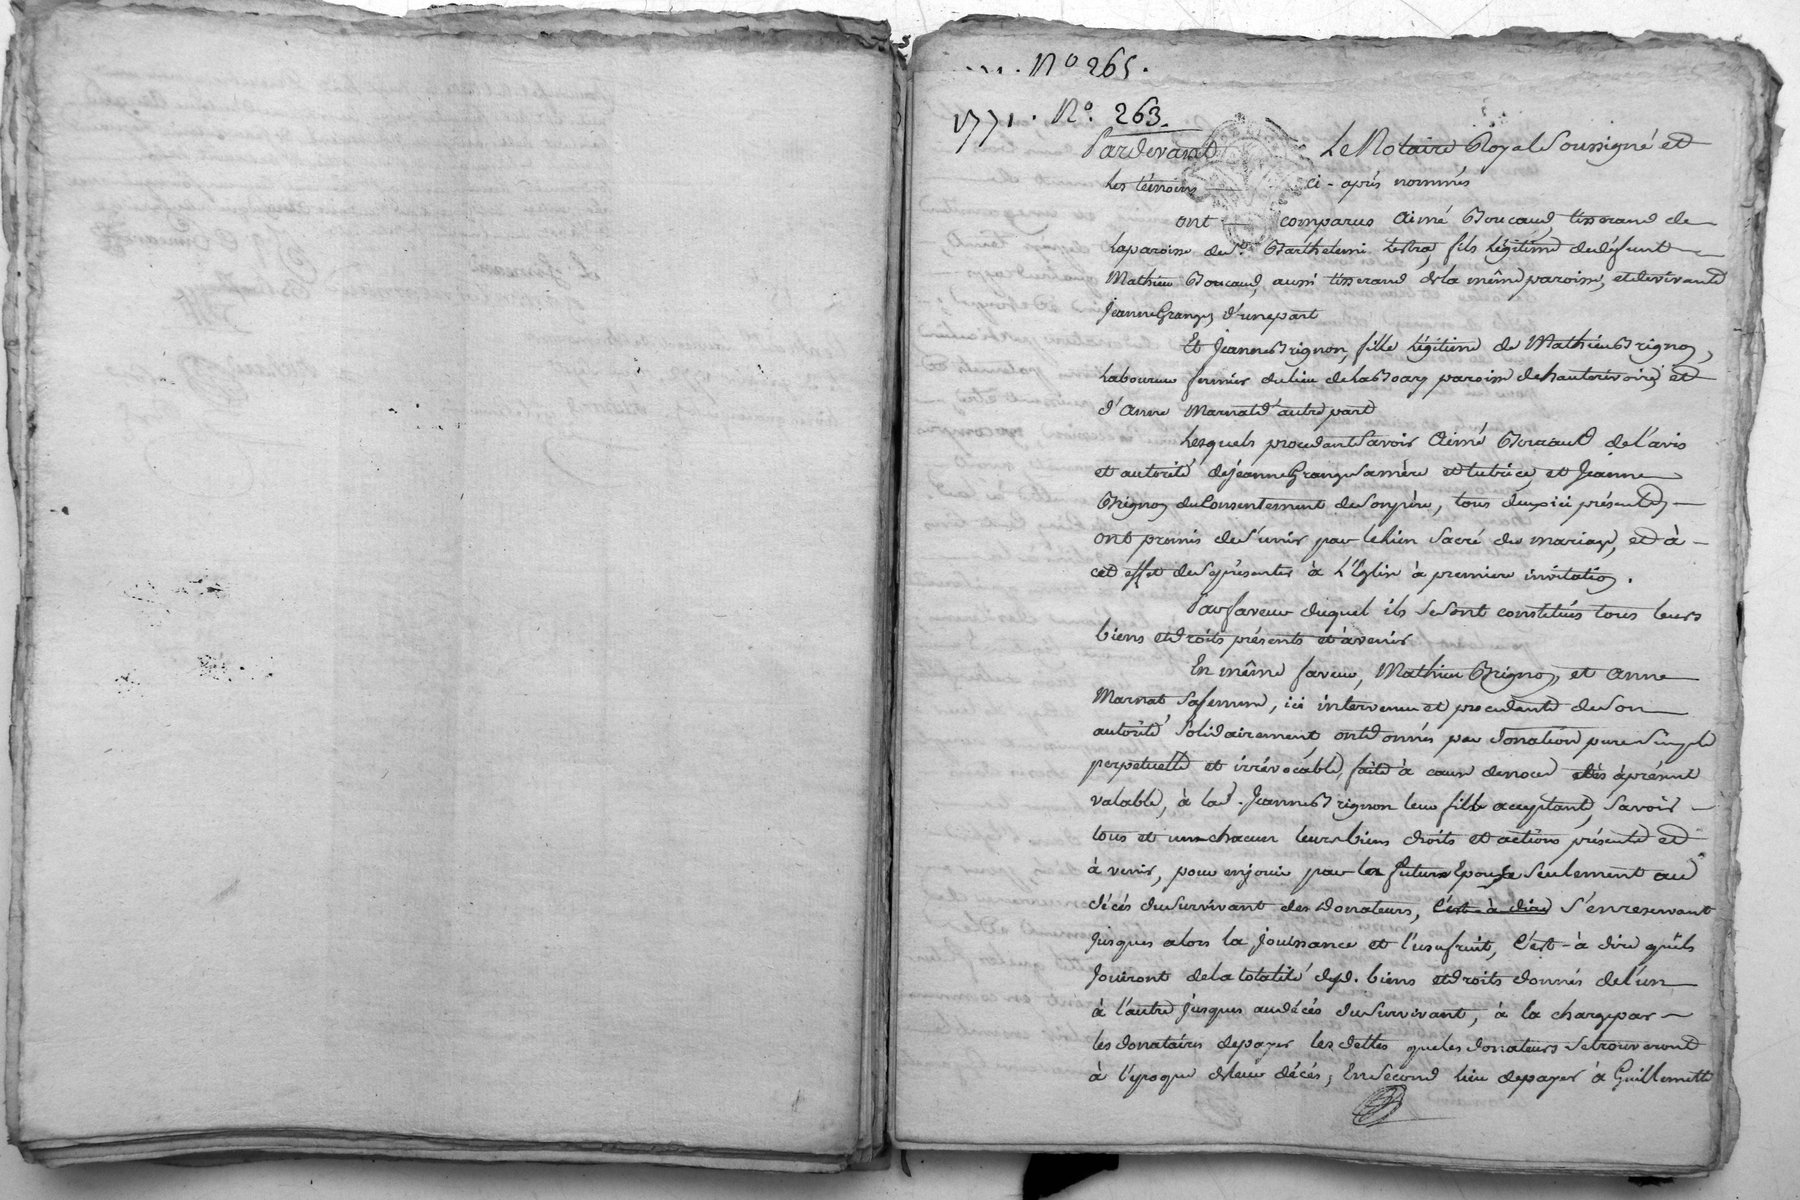 .... No 265.
1771. No. 263.
Pardevant Le Notaire Royal Soussigné et
Les témoins ci-après nommés
ont comparus Aimé Boucaud, tisserand de
la paroisse de St. Barthelemi Lestra, fils légitime de défunt
Mathieu Boucaud, aussi tisserand de la même paroisse, et de vivante
Jeanne Grange, d'une part
Et Jeanne Brignon, fille légitime de Mathieu Brignon,
Laboureur fermier du lieu de paroisse de hauterivoire et
d'Anne Marnat d'autre part
Lesquels procedant Savoir Aimé Boucaud de l'avis
et autorité de jeanne Grange sa mère et tutrice, et Jeanne
Brignon du Consentement de Son père, tous deux ici présents,
ont promis de S'unir par le lien Sacré du mariage, et à
cet effet de Se présenter à L'Eglise à premiere invitation.
Par faveur duquel ils Se Sont constitués tous leurs
biens et droits présents et à venir
En même faveur, Mathieu Brignon, et Anne
Marnat Sa femme, ici intervenue et procedante de Son
autorité Solidairement ont donnés par Donation pure Simple
perpetuelle et irrévocable, faite à cause de noce dès àprésent
valable, à lad. Jeanne Brignon leur fille acceptante, Savoir
tous et un chacun leurs biens droits et actions présents et
à venir, pour en jouir par la future Epouse Seulement au
décès du Survivant des Donateurs, c'est à dire S'en reservant
jusques alors la jouissance et l'usufruit, C'est-à dire qu'ils
Jouiront de la totalité desd. biens et droits donnés de l'un
à l'autre jusques au décés du Survivant, à la charge par
les donataires de payer les dettes que les donateurs Se trouveront
à l'époque de leur décés; En Second lieu de payer à Guillemette